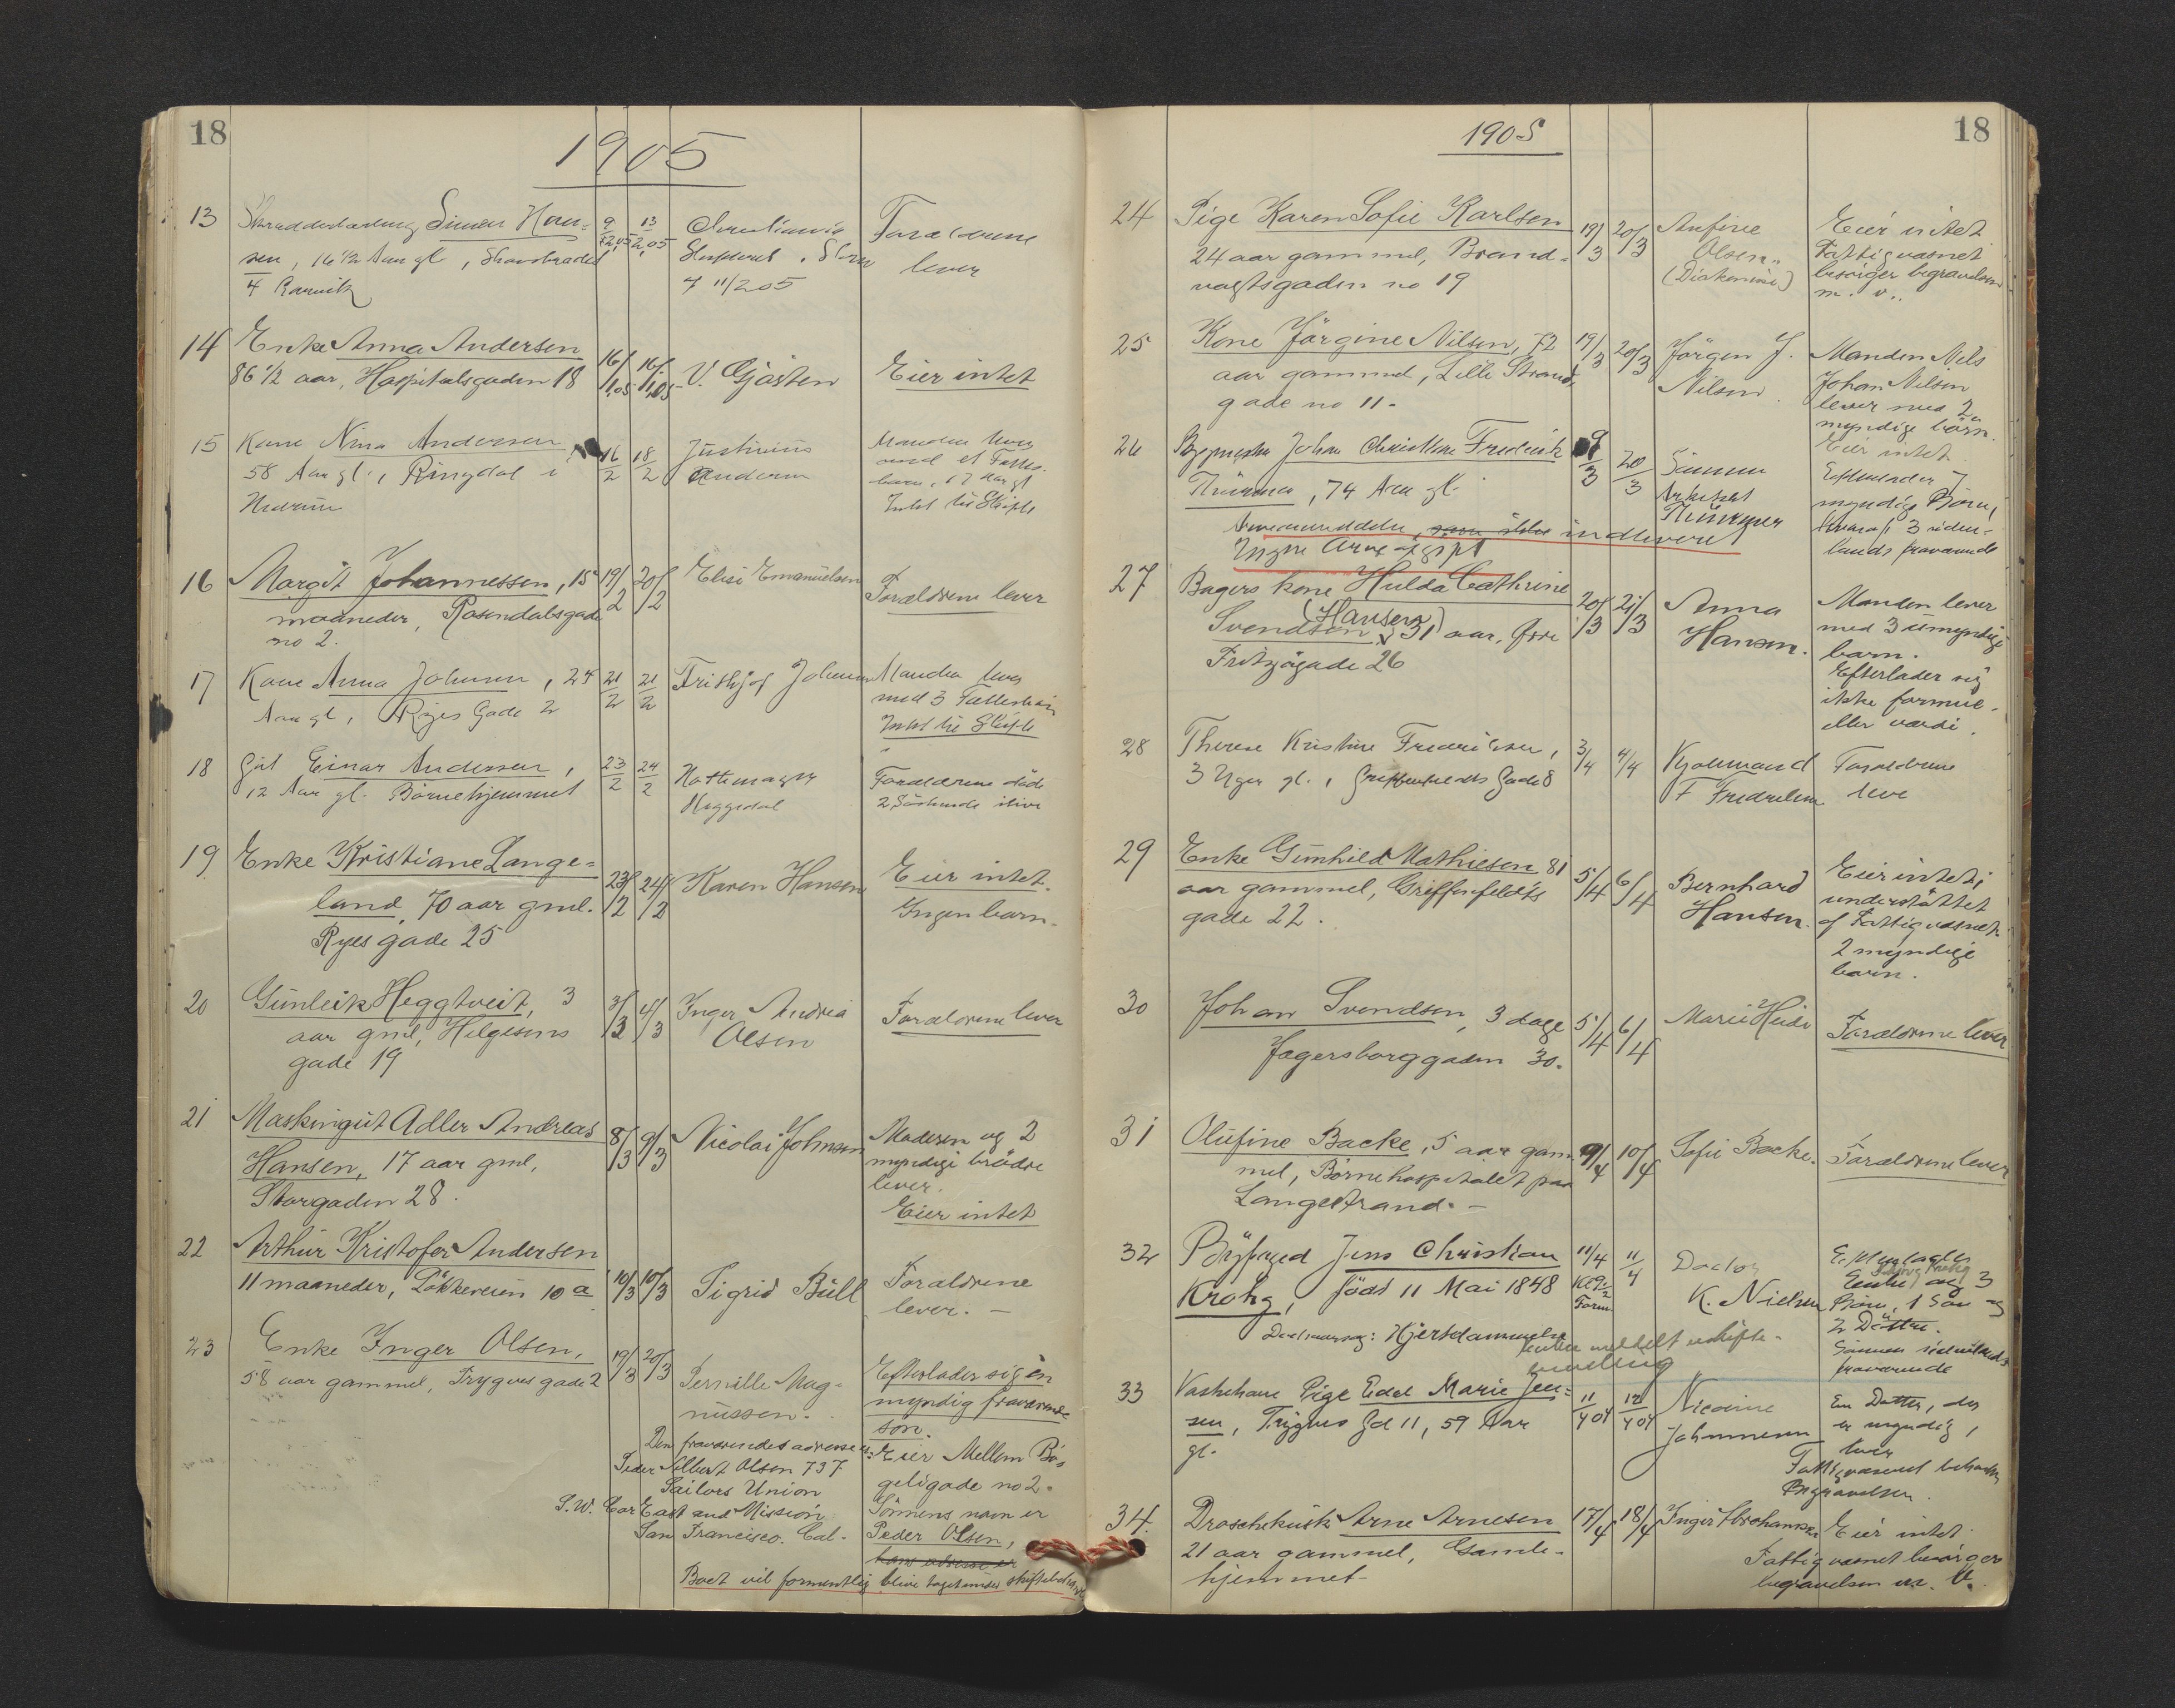 18
1905
13
Simen Han=
sen, 16 1/2 Aar gl,
9/2,05
13/2,05
4
11/2 05
Forældrene
lever
14
Enke Anna Andersen
86 1/2 aar, Hospitalsgaden 18
16/1,05
16/1,05
V. Gjøsten
Eier intet
15
Kone Nina Andersen
58 Aar gl., Ringdal i
Hedrum
16/2
18/2
Justinius
Andersen
Manden lever
med et Fælles-
barn, 17 Aar gl
Intet til Skifte
16
Margit Johannessen, 15
maaneder, Rosendalsgade
no 2.
19/2
20/2
Elise Emanuelsen
Forældrene lever
17
Kone Anna Johnsen, 24
Aar gl, Ryes Gade 2
21/2
21/2
Fritkjof Johnsen
Manden lever
med 3 Fællesbørn
Intet til Skifte
18
Gut Einar Andersen,
12 Aar gl. Børnehjemmet
23/2
24/2
Hattemager
Heggedal
Forældrene døde
2 Søskende ilive
19
Enke Kristiane Lange=
land, 70 aar gml.
Ryes gade 25
23/2
24/2
Karen Hansen
Eier intet.
Ingen barn.
20
Gunleik Heggtveit, 3
aar gml, Helgesens
gade 19
3/3
4/3
Inger Andrea
Olsen
Forældrene lever
21
Maskingut Adler Andreas
Hansen, 17 aar gml,
Storgaden 28.
8/3
9/3
Nicolai Johnsen
Moderen og 2
myndige brødre
lever.
Eier intet
22
Arthur Kristofer Andersen
11 maaneder, Løkkeveien 10 a
10/3
10/3
Sigrid Bull
Forældrene
lever. -
23
Enke Inger Olsen,
58 aar gammel, Trygves gade 2
19/3
20/3
Pernille Mag-
nussen.
Efterlader sig en
myndig fraværende
søn.
Den fraværendes adresse er:
Peder Albert Olsen 737
Sailors Union
S.W. Cor East and Mission
San Francisco. Cal-
Eier Mellem Bø-
geligade no 2.
Sønnens navn er
Peder Olsen,
hans adresse er
Boet vil formentlig blive taget under skiftebeh
18
1905
24
Pige Karen Sofie Karlsen
24 aar gammel, Brand-
vagtsgaden no 19
19/3
20/3
Anfine
Olsen
(Diakonisse)
Eier intet
Fattigvæsnet
besørger begravelsen
m. v..
25
Kone Jørgine Nilsen, 72
aar gammel, Lille Strand-
gade no 11-
19/3
20/3
Jørgen J.
Nilsen
Manden Nils
Johan Nilsen
lever med 2
myndige børn.
Eier intet
26
Johan Christian Frederik
Thurmer, 74 Aar gl.
9/3
20/3
Sønnen
Arkitekt
Thurmer
Efterlader 7
myndige Børn,
hvoraf 3 uden-
lands fraværende
som ikke indleveret
Ingen Arveafgift
27
Bagers kone Hulda Cathrine
Svendsen (Hansen) 31 aar, Øvre
Fritzøgade 26
20/3
21/3
Anna
Hansen.
Manden lever
med 3 umyndige
barn.
Efterlader sig
ikke formue
eller værdi.
28
Therese Kristine Fredriksen,
3 Uger gl., Griffenfeldts Gade 8
3/4
4/4
Kjøbmand
F Fredriksen
Forældrene
leve
29
Enke Gunhild Mathiesen 81
aar gammel, Griffenfeldts
gade 22.
5/4
6/4
Bernhard
Hansen.
Eier intet;
understøttet
af Fattigvæsnet.
2 myndige
barn.
30
Johan Svendsen, 3 dage
Jegersborggaden 30.
5/4
6/4
Marie Heide
Forældrene lever
31
Olufine Backe, 5 aar gam-
mel, Børnehospitalet paa
Langestrand. -
9/4
10/4
Sofie Backe.
Forældrene lever
32
Byfoged Jens Christian
Krohg, født 11 Mai 1848
Dødsaarsag: Hjertelammelse
11/4
Kl 9 1/2
Form
11/4
Doctor
K. Nielsen
Efterlader
Enke og 3
Børn, 1 Søn og
2 Døttre.
Sønnen udenlands
fraværende
Enken meddelt uskifte-
bevilling
33
Vaskekone Pige Edel Marie Jen=
sen, Trygves Gd 11, 59 Aar
gl.
11/4 04
12/4 04
Nicoline
Johannesen
En Datter, der
er myndig,
lever
Fattigvæsenet bekoster
Begravelsen.
34.
Droschekusk Arne Arnesen
21 aar gammel, Gamle-
hjemmet
17/4
18/4
Inger Abrahamsen
Eier intet.
Fattigvæsnet besørger
begravelsen m. v.